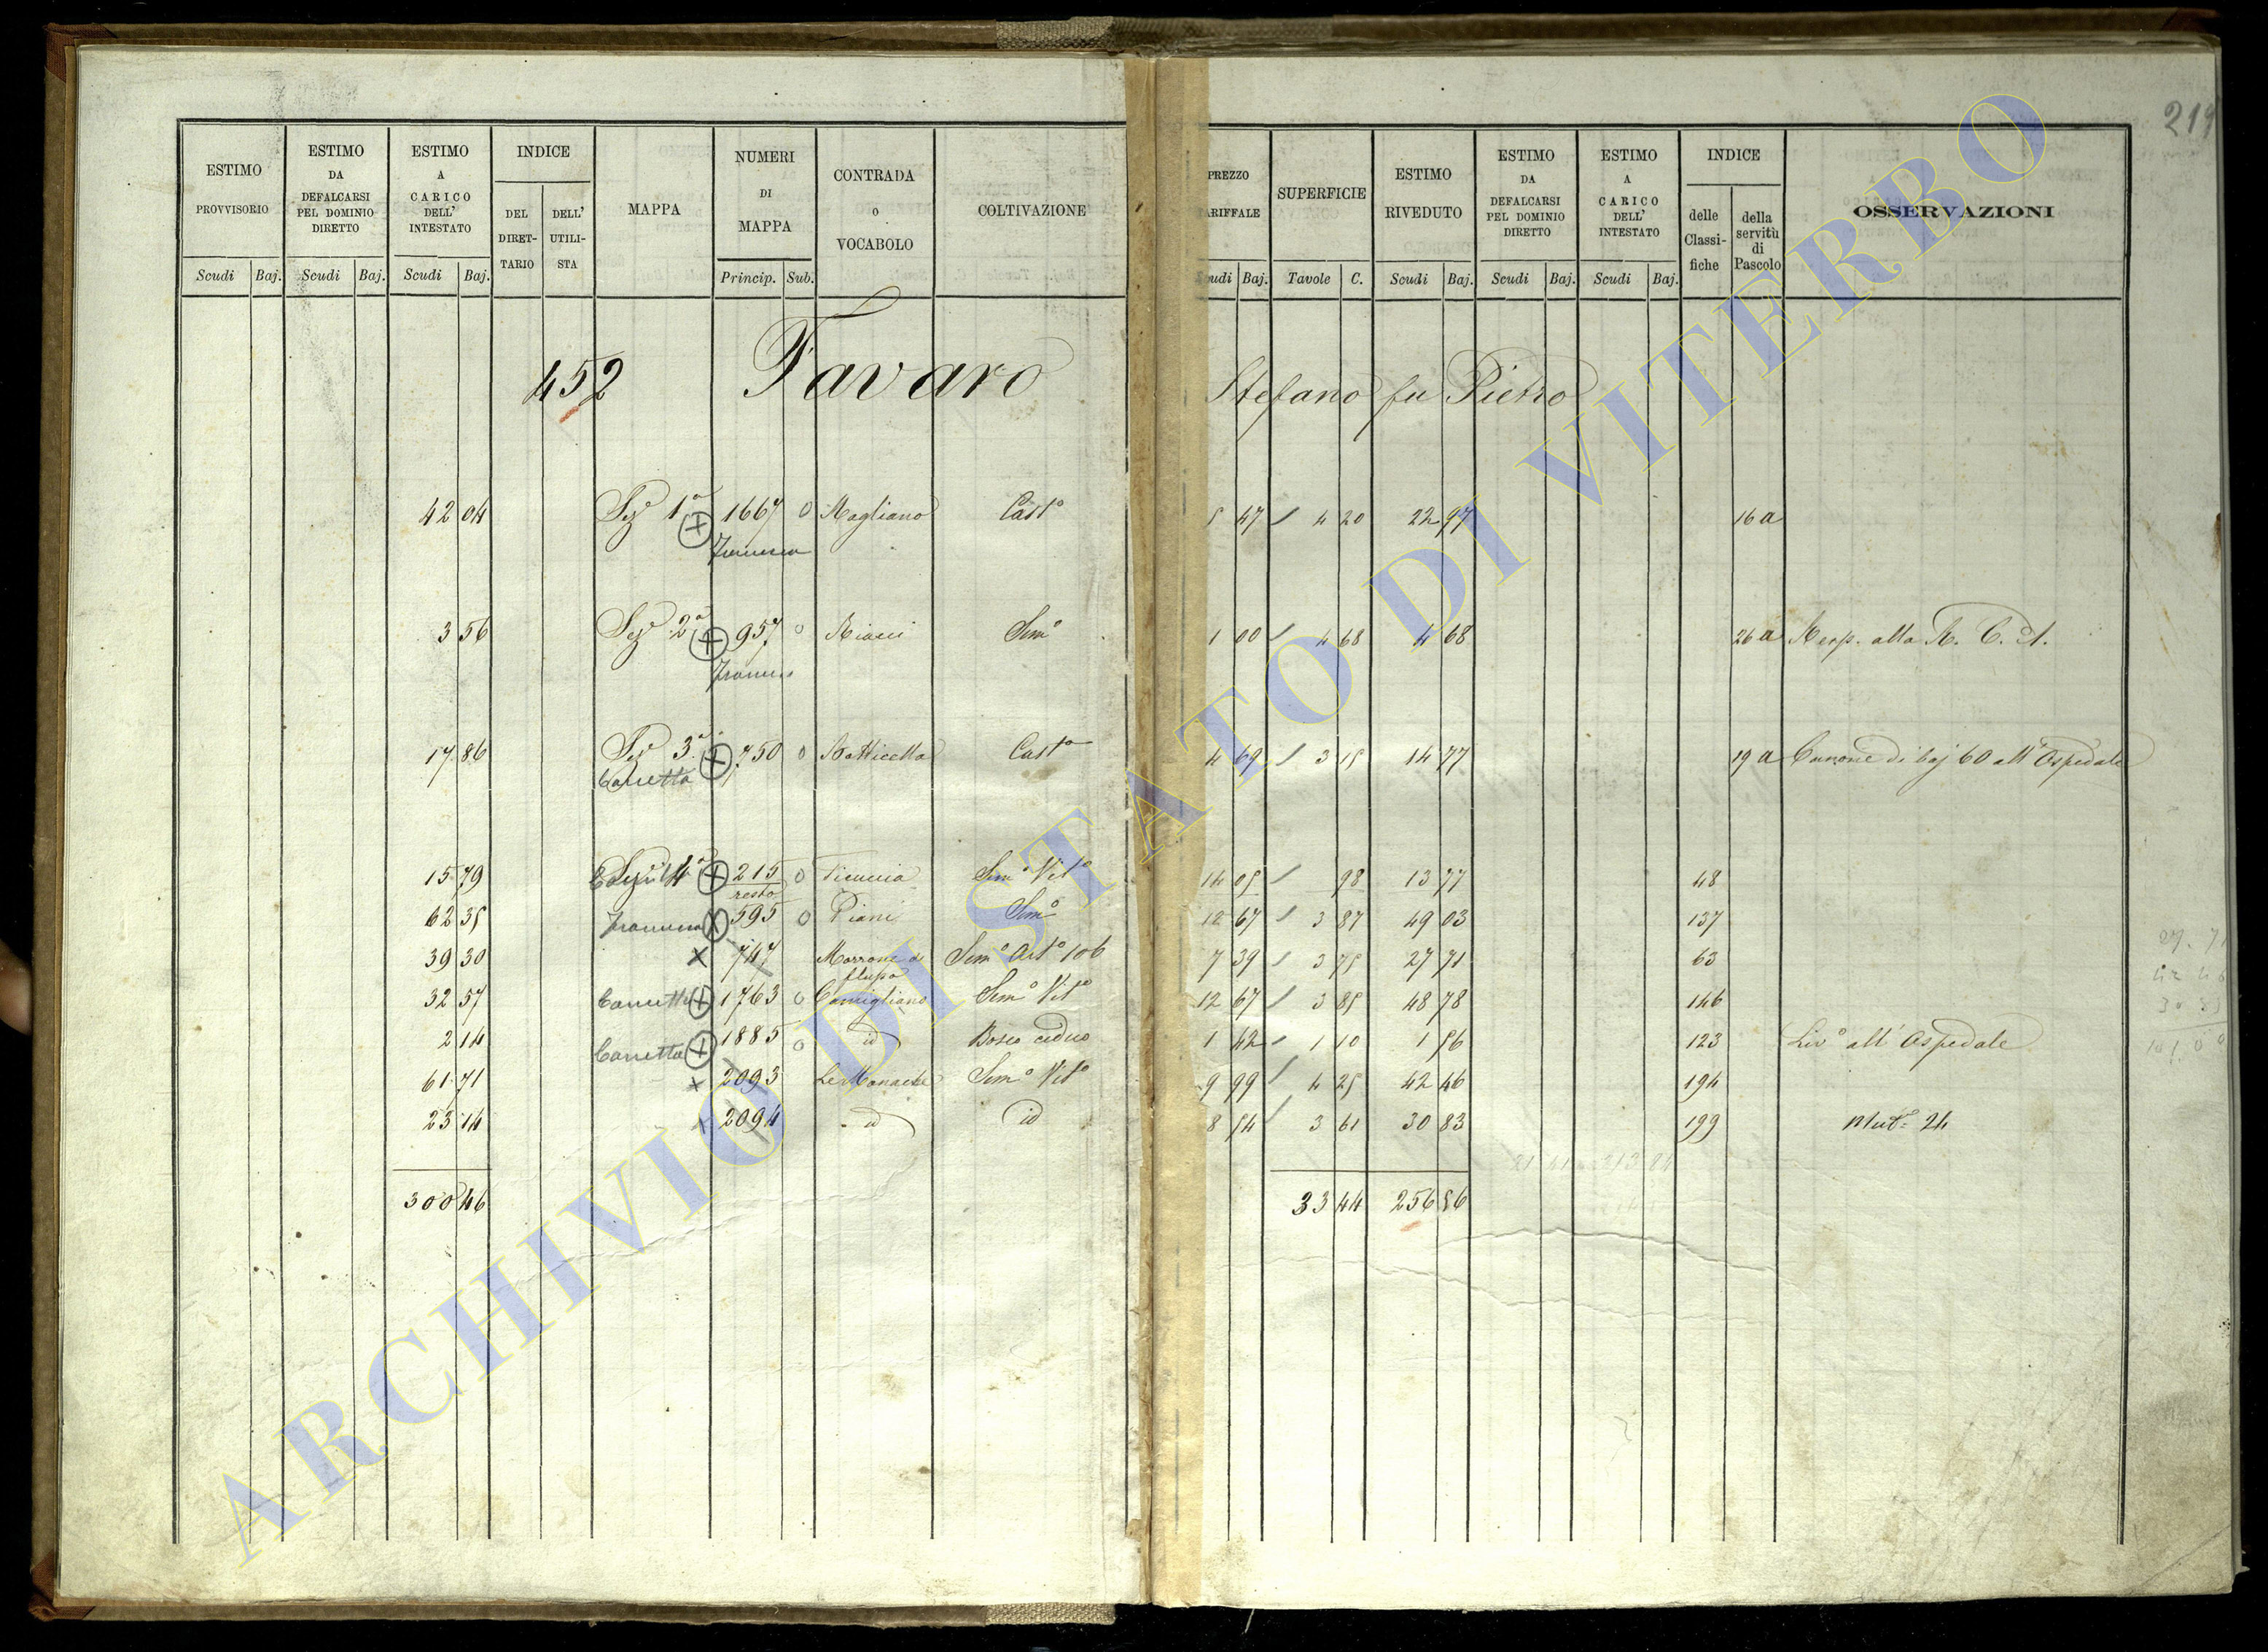 219
ESTIMO PROVVISORIO
ESTIMO DA DEFALCARSI PEL DOMINIO DIRETTO
ESTIMO A CARICO DELL' INTESTATO
INDICE
DEL DIRET-TARIO
DELL' UTILI-STA
MAPPA
NUMERI DI MAPPA
CONTRADA o VOCABOLO
COLTIVAZIONE
PREZZO TARIFFALE
SUPERFICIE
ESTIMO RIVEDUTO
ESTIMO DA DEFALCARSI PEL DOMINIO DIRETTO
ESTIMO A CARICO DELL' INTESTATO
INDICE
delle Classi-fiche
della servitù di Pascolo
OSSERVAZIONI
Scudi Baj. Scudi Baj. Scudi Baj. Princip. Sub. Scudi Baj. Tavole C. Scudi Baj. Scudi Baj. Scudi Baj.
452 Favaro Stefano fu Pietro
42 04 Sez 1a 1667 0 Magliano Casto 5 47 4 20 22 97 16 a
3 56 Sez 2a 957 0 Semo 1 00 4 68 4 68 26 a Resp. alla R. C. A.
17 86 Sez 3a 750 0 Botticella Casto 4 69 3 15 14 77 19 a Canone di baj 60 all' Ospedale
Canetta
15 79 4a 215 0 Ficuccia Semo Vito 14 05 98 13 77 48
resto
62 35 595 0 Piani Semo 12 67 3 87 49 03 137
39 30 747 Marrone Semo Arto 106 7 39 3 75 27 71 63
32 57 Canetta 1763 0 Camigliano Semo Vito 12 67 3 85 48 78 146
2 14 Canetta 1885 0 id Bosco ceduo 1 42 1 10 1 56 123 Livo all' Ospedale
61 71 2093 Le Monache Semo Vito 9 99 4 25 42 46 194
23 14 2094 id id 8 54 3 61 30 83 199 Mut. 24
300 46 33 44 256 86
ARCHIVIO DI STATO DI VITERBO